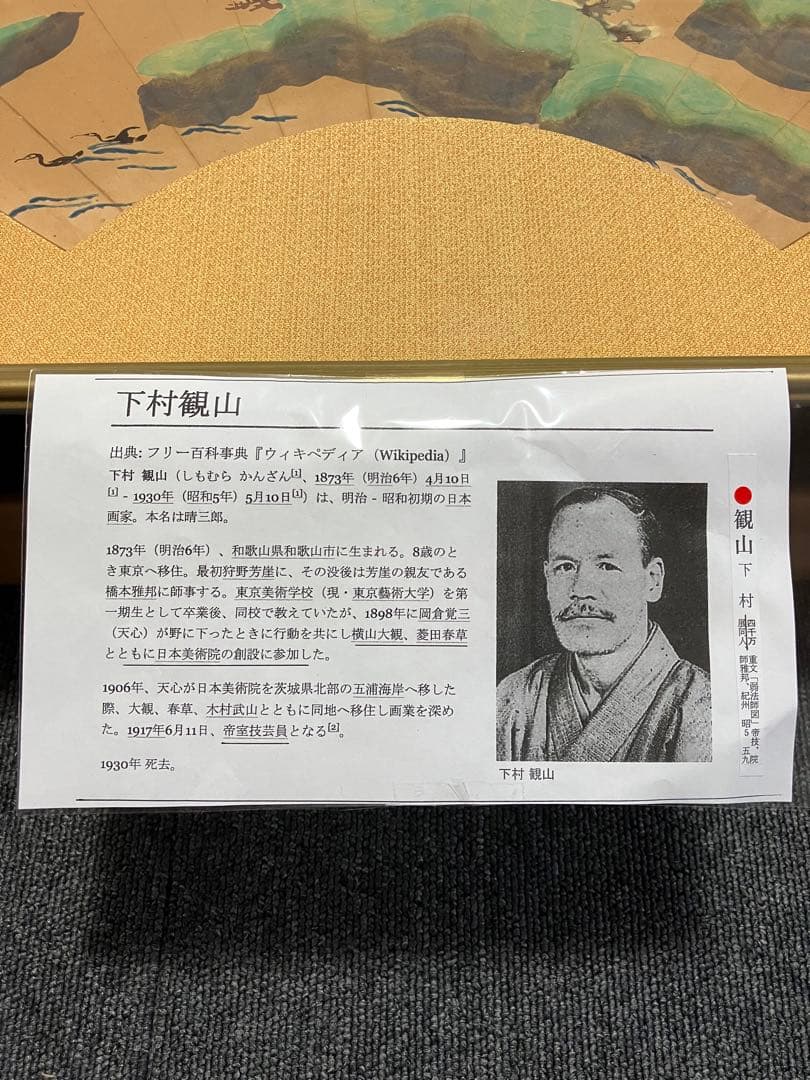 下村観山
出典: フリー百科事典『ウィキペディア（Wikipedia）』
下村 観山（しもむら かんざん[1]、1873年（明治6年）4月10日
[1] - 1930年（昭和5年）5月10日[1]）は、明治 - 昭和初期の日本
画家。本名は晴三郎。
1873年（明治6年）、和歌山県和歌山市に生まれる。8歳のと
き東京へ移住。最初狩野芳崖に、その没後は芳崖の親友である
橋本雅邦に師事する。東京美術学校（現・東京藝術大学）を第
一期生として卒業後、同校で教えていたが、1898年に岡倉覚三
（天心）が野に下ったときに行動を共にし横山大観、菱田春草
とともに日本美術院の創設に参加した。
1906年、天心が日本美術院を茨城県北部の五浦海岸へ移した
際、大観、春草、木村武山とともに同地へ移住し画業を深め
た。1917年6月11日、帝室技芸員となる[2]。
1930年 死去。
下村 観山
観山 下村
四千万
重文「弱法師図」帝技、院
展同人
師雅邦、紀州 昭5 五九